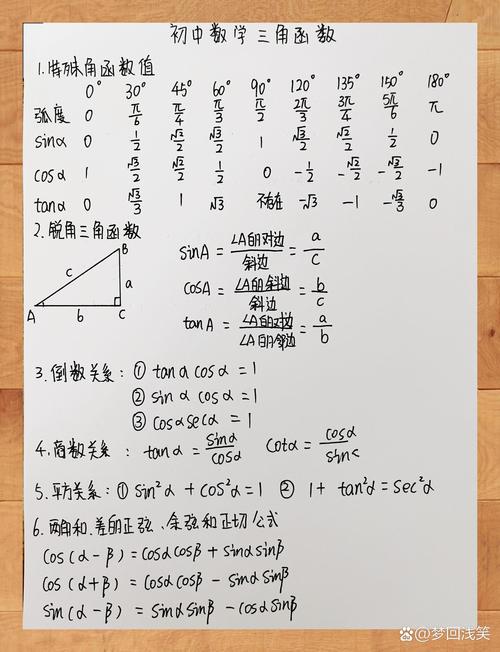 初中数学三角函数
1.特殊角函数值
0° 30° 45° 60° 90° 120° 135° 150° 180°
弧度 0 π/6 π/4 π/3 π/2 2π/3 3π/4 5π/6 π
sinα 0 1/2 √2/2 √3/2 1 √3/2 √2/2 1/2 0
cosα 1 √3/2 √2/2 1/2 0 -1/2 -√2/2 -√3/2 -1
tanα 0 √3/3 1 √3 不存在 -√3 -1 -√3/3 0
2.锐角三角函数
A B C a b c
sinA = ∠A的对边/斜边 = a/c
cosA = ∠A的斜边/斜边 = b/c
tanA = ∠A的对边/∠A的邻边 = a/b
3.倒数关系:① tanα cosα = 1
② sinα cosα = 1
③ cosα secα = 1
4.商数关系: tanα = sinα/cosα cotα = cosα/sinα
5.平方关系:① sin²α + cos²α = 1 ② 1 + tan²α = sec²α
6.两角和、差的正弦、余弦和正切公式
cos(α-β) = cosαcosβ + sinαsinβ
cos(α+β) = cosαcosβ - sinαsinβ
sin(α-β) = sinαsinβ - cosαsinβ
@梦回浅笑